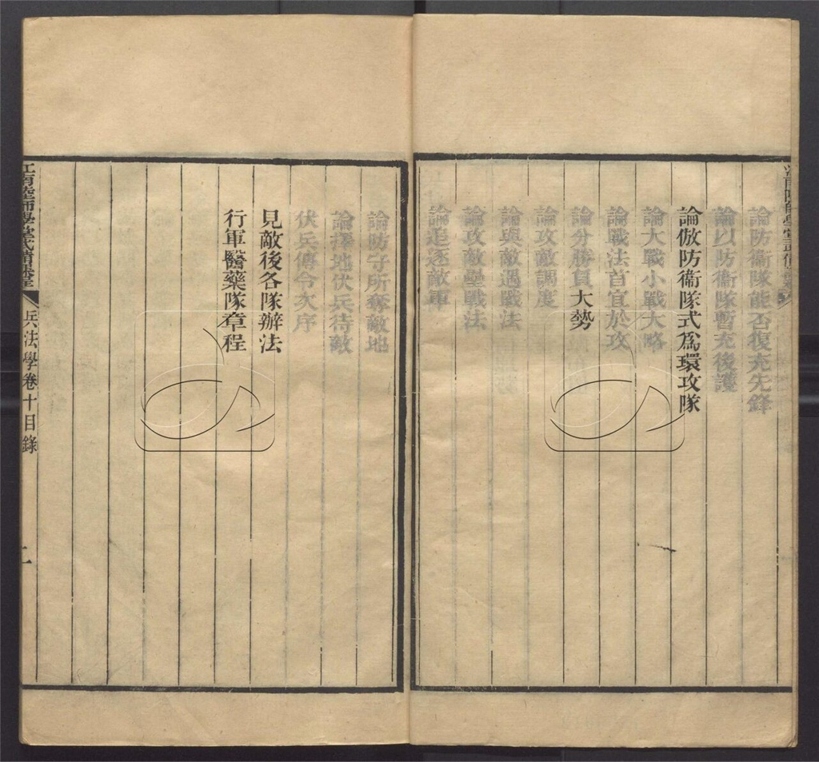 論防衛隊能否復充先鋒
論以防衛隊暫充後護
論倣防衛隊式爲環攻隊
論大戰小戰大略
論戰法首宜於攻
論分勝負大勢
論攻敵調度
論與敵遇戰法
論攻敵壘戰法
論追逐敵軍
論防守所奪敵地
論擇地伏兵待敵
伏兵傳令次序
見敵後各隊辦法
行軍醫藥隊章程
兵法學卷十目錄
二